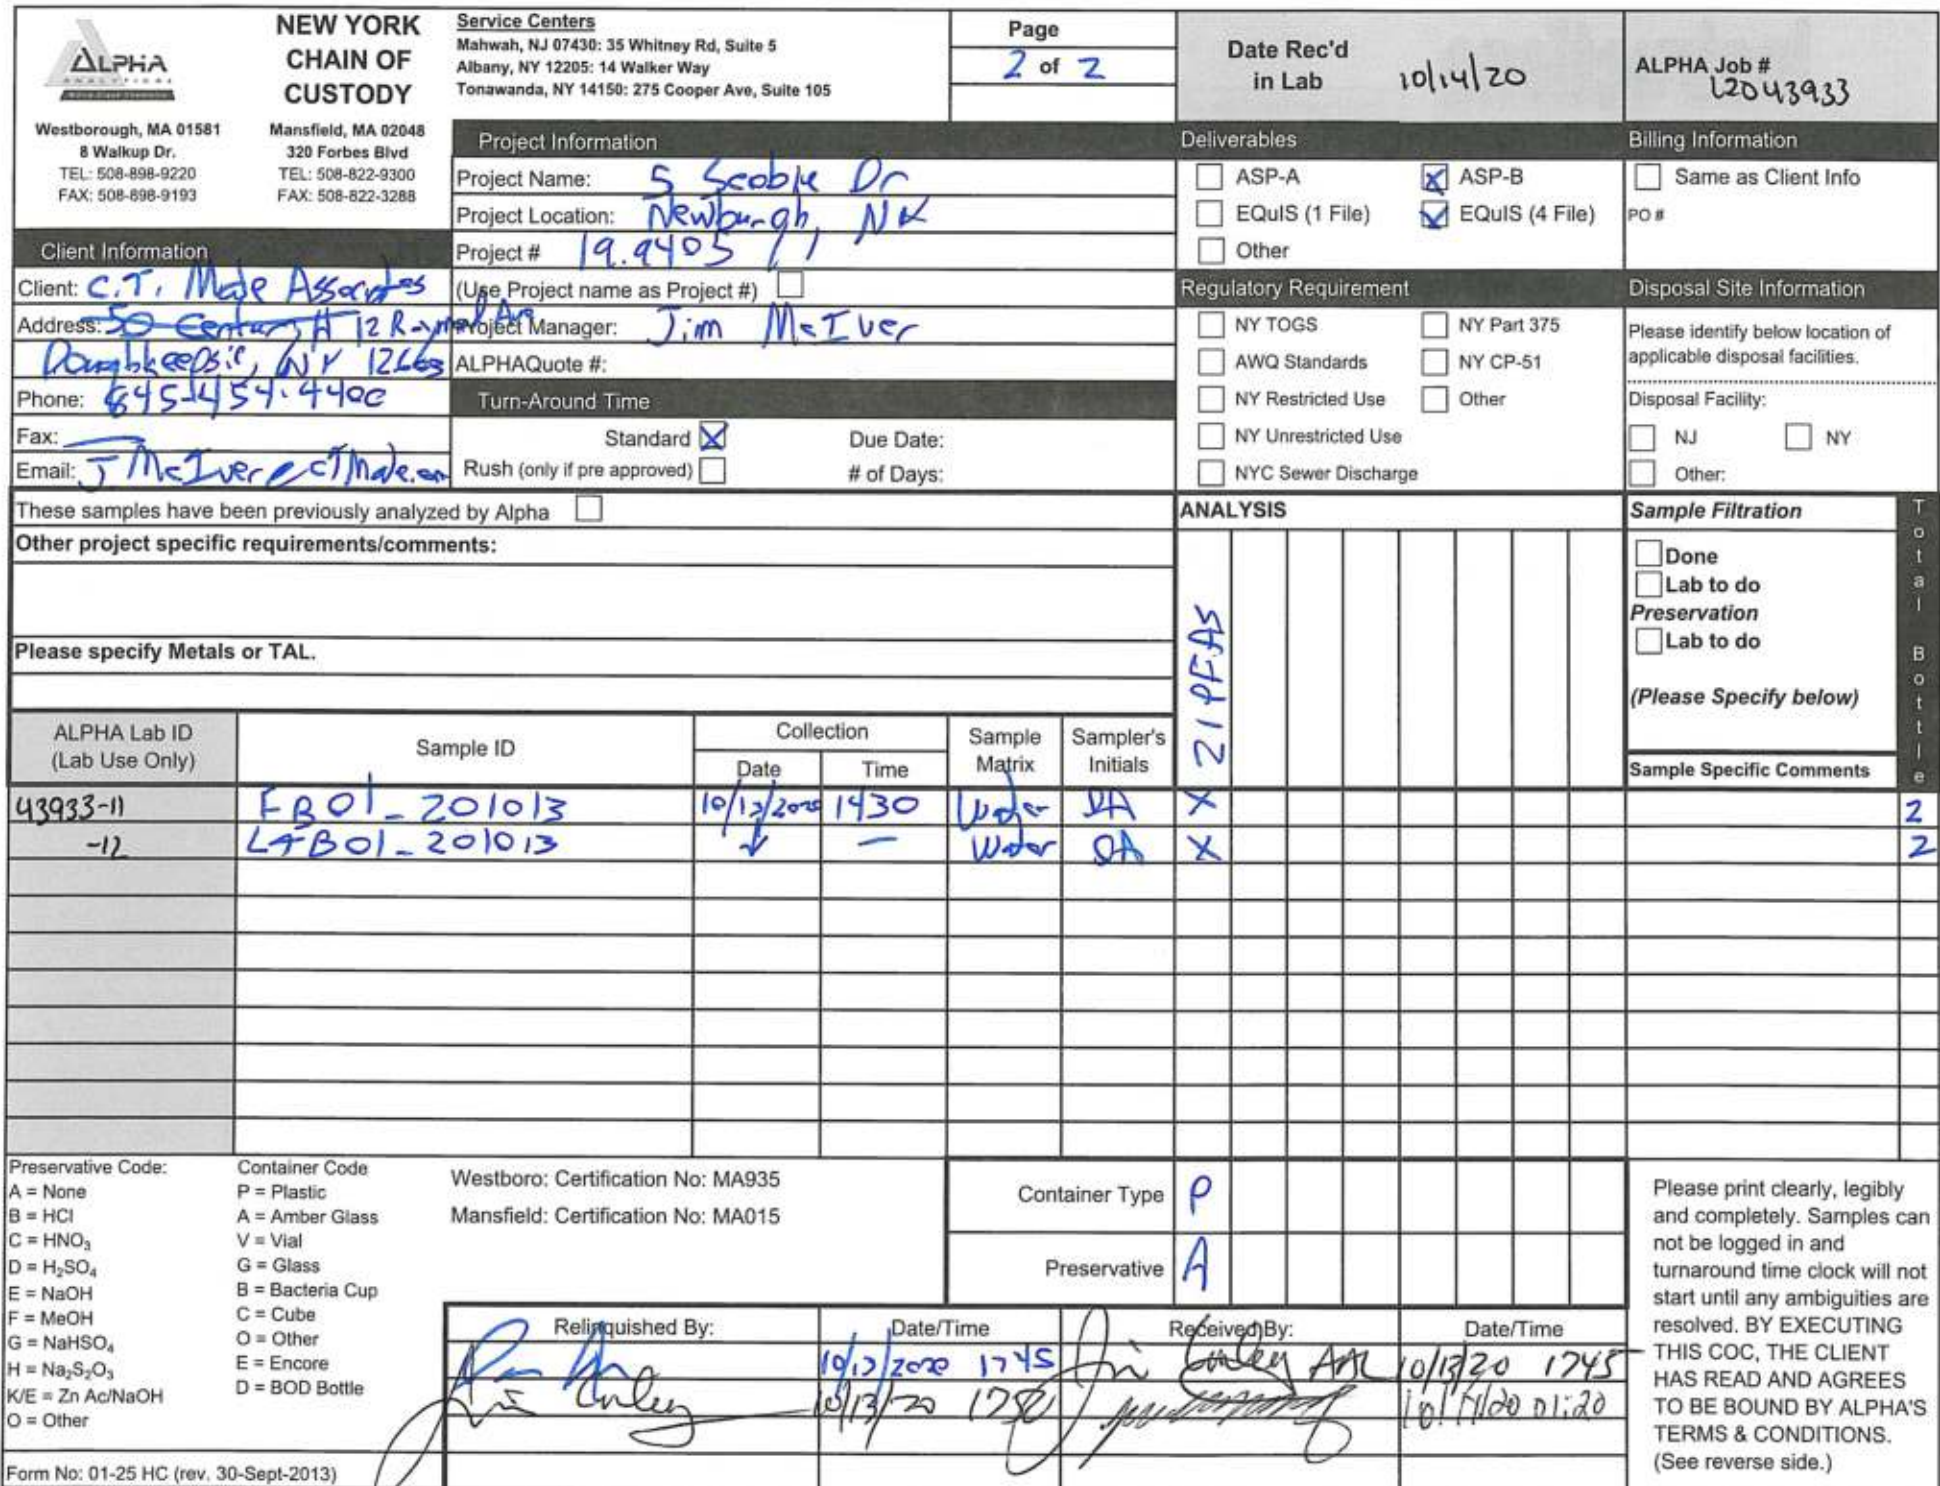 ALPHA
ANALYTICAL
NEW YORK
CHAIN OF
CUSTODY
Westborough, MA 01581
8 Walkup Dr.
TEL: 508-898-9220
FAX: 508-898-9193
Mansfield, MA 02048
320 Forbes Blvd
TEL: 508-822-9300
FAX: 508-822-3288
Service Centers
Mahwah, NJ 07430: 35 Whitney Rd, Suite 5
Albany, NY 12205: 14 Walker Way
Tonawanda, NY 14150: 275 Cooper Ave, Suite 105
Page
2 of 2
Date Rec'd
in Lab 10/14/20
ALPHA Job #
L2043933
Project Information
Project Name: 5 Scobie Dr
Project Location: Newburgh, NY
Project # 19.9405
(Use Project name as Project #)
Project Manager: Jim McIver
ALPHAQuote #:
Turn-Around Time
Standard X Due Date:
Rush (only if pre approved) # of Days:
Client Information
Client: C.T. Male Associates
Address: 50 Century H 12 Raymond Ave
Poughkeepsie, NY 12603
Phone: 845-454-4400
Fax:
Email: J McIver@CTMale.com
Deliverables
ASP-A X ASP-B
EQuIS (1 File) X EQuIS (4 File)
Other
Regulatory Requirement
NY TOGS NY Part 375
AWQ Standards NY CP-51
NY Restricted Use Other
NY Unrestricted Use
NYC Sewer Discharge
Billing Information
Same as Client Info
PO #
Disposal Site Information
Please identify below location of
applicable disposal facilities.
Disposal Facility:
NJ NY
Other:
These samples have been previously analyzed by Alpha
Other project specific requirements/comments:
Please specify Metals or TAL.
ANALYSIS
21 PFAS
Sample Filtration
Done
Lab to do
Preservation
Lab to do
(Please Specify below)
Sample Specific Comments
Total Bottle
ALPHA Lab ID
(Lab Use Only)
Sample ID
Collection
Date Time
Sample
Matrix
Sampler's
Initials
43933-11 FB01_201013 10/13/2020 1430 Water DA X 2
-12 LFB01_201013 — Water DA X 2
Preservative Code:
A = None
B = HCl
C = HNO3
D = H2SO4
E = NaOH
F = MeOH
G = NaHSO4
H = Na2S2O3
K/E = Zn Ac/NaOH
O = Other
Container Code
P = Plastic
A = Amber Glass
V = Vial
G = Glass
B = Bacteria Cup
C = Cube
O = Other
E = Encore
D = BOD Bottle
Westboro: Certification No: MA935
Mansfield: Certification No: MA015
Container Type P
Preservative A
Relinquished By: Date/Time Received By: Date/Time
10/13/2020 1745 AAL 10/13/20 1745
10/13/20 01:20
Please print clearly, legibly
and completely. Samples can
not be logged in and
turnaround time clock will not
start until any ambiguities are
resolved. BY EXECUTING
THIS COC, THE CLIENT
HAS READ AND AGREES
TO BE BOUND BY ALPHA'S
TERMS & CONDITIONS.
(See reverse side.)
Form No: 01-25 HC (rev. 30-Sept-2013)